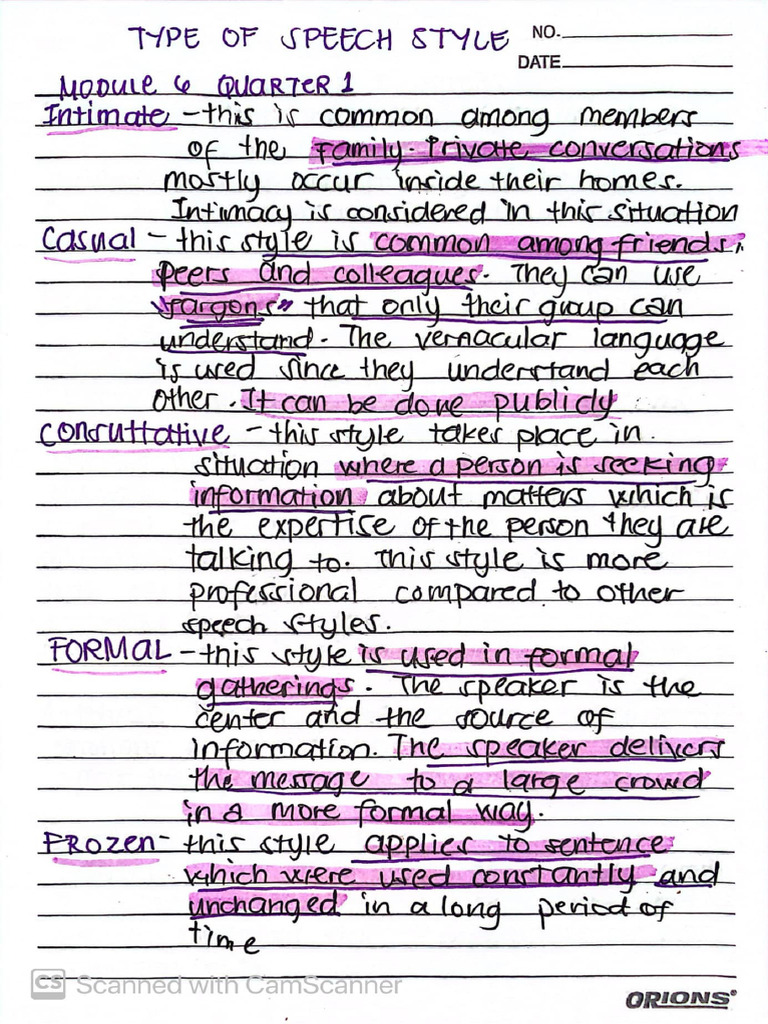 TYPE OF SPEECH STYLE NO.
DATE
MODULE 6 QUARTER 1
Intimate - this is common among members
of the family. Private conversations
mostly occur inside their homes.
Intimacy is considered in this situation
Casual - this style is common among friends,
peers and colleagues. They can use
"Jargons" that only their group can
understand. The vernacular language
is used since they understand each
other. It can be done publicly
Consultative - this style takes place in
situation where a person is seeking
information about matters which is
the expertise of the person they are
talking to. This style is more
professional compared to other
speech styles.
FORMAL - this style is used in formal
gatherings. The speaker is the
center and the source of
information. The speaker delivers
the message to a large crowd
in a more formal way.
FROZEN - this style applies to sentence
which were used constantly and
unchanged in a long period of
time
CS Scanned with CamScanner
ORIONS